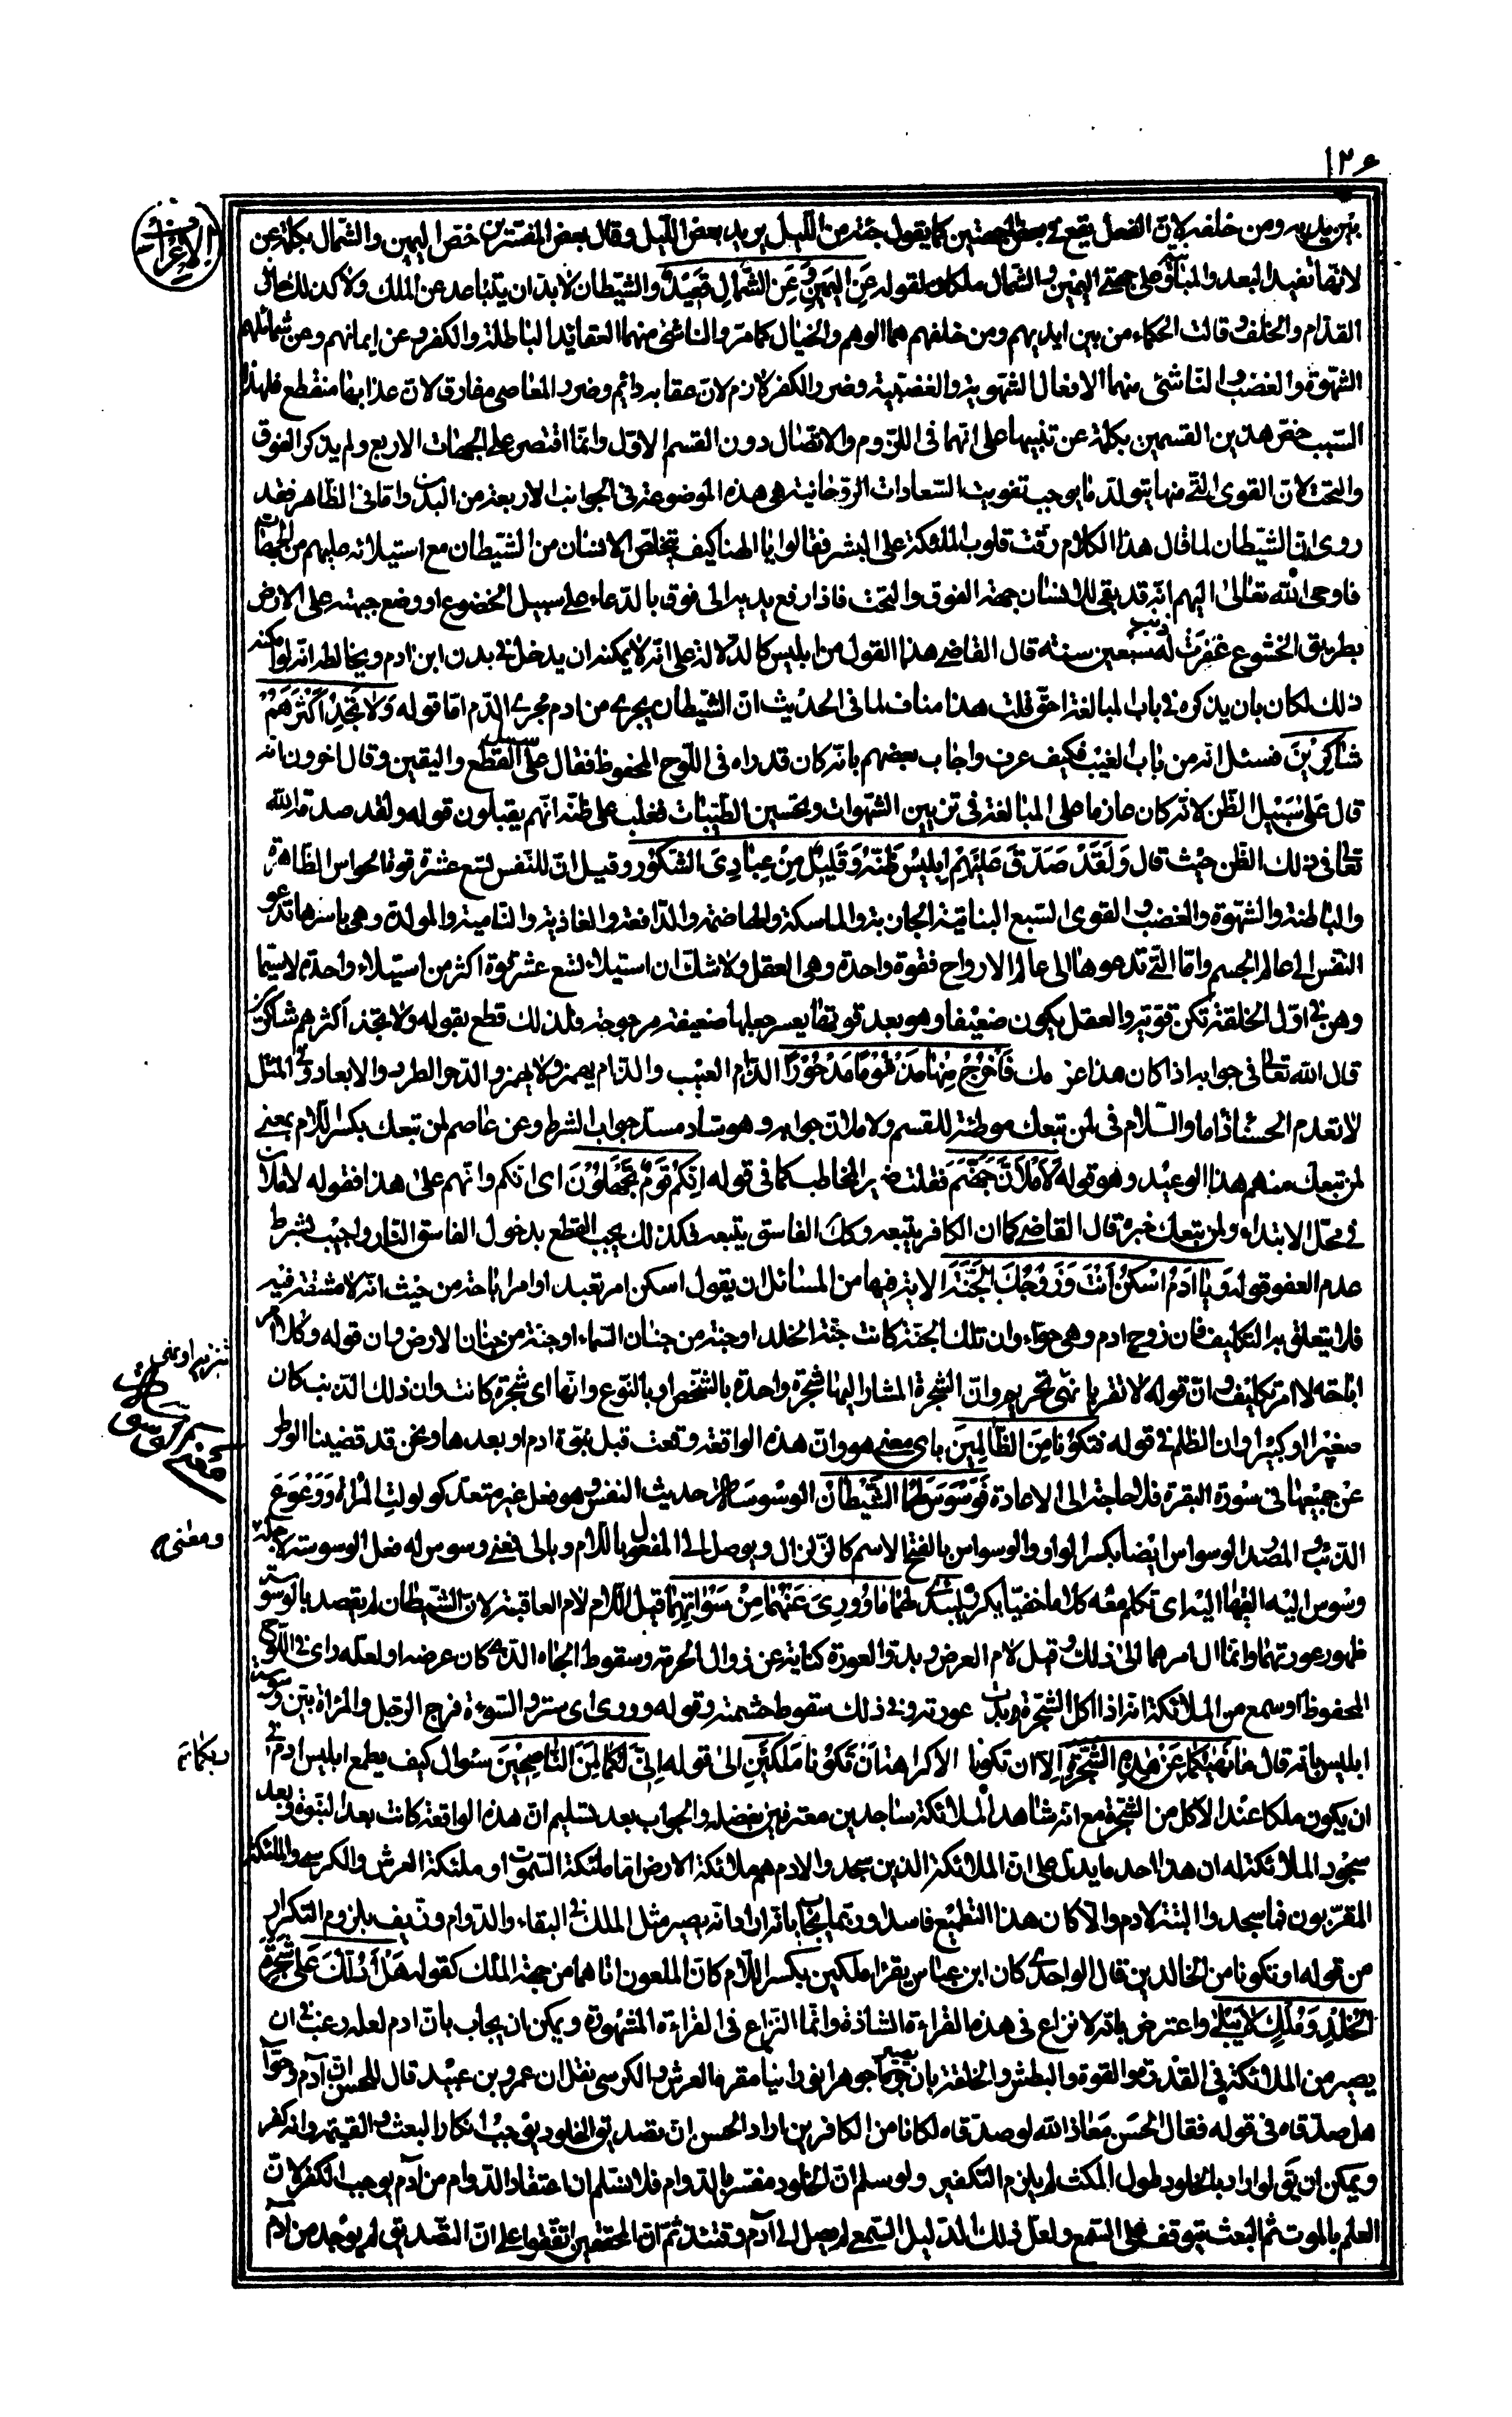 ١٢۶
الاعراف
بين يديه ومن خلفه لان الفعل يقع في بعض الجهتين كما يقول جئته من الليل يريد بعض الليل وقال بعض المفسرين خص اليمين والشمال بكلمة عن
لانها تفيد البعد والمباينة وعلى جهتي اليمين والشمال ملكان لقوله عَنِ الْيَمِينِ وَعَنِ الشِّمَالِ قَعِيدٌ والشيطان لا بد ان يتباعد عن الملك ولا كذلك حال
القدام والخلف وقالت الحكماء من بين ايديهم ومن خلفهم هما الوهم والخيال كما مر والناشئ منهما العقائد الباطلة والكفر وعن ايمانهم وعن شمائلهم
الشهوة والغضب والناشئ منهما الافعال الشهوية والغضبية وضرر الكفر لازم لان عقابه دائم وضرر المعاصي مفارق لان عذابها منقطع فلهذا
السبب خص هذين القسمين بكلمة عن تنبيها على انهما في اللزوم والاتصال دون القسم الاول وانما اقتصر على الجهات الاربع ولم يذكر الفوق
والتحت لان القوى التي منها يتولد ما يوجب تفويت السعادات الروحانية هي هذه الموضوعة في الجوانب الاربعة من البدن واما في الظاهر فقد
روى ان الشيطان لما قال هذا الكلام رقت قلوب الملئكة على البشر فقالوا يا الهنا كيف يتخلص الانسان من الشيطان مع استيلائه عليهم من الجهات
فاوحى الله تعالى اليهم انه قد بقى للانسان جهة الفوق والتحت فاذا رفع يديه الى فوق بالدعاء على سبيل الخضوع او وضع جبهته على الارض
بطريق الخشوع غفرت له ذنب سبعين سنة قال القاضي هذا القول من ابليس كالدلالة على انه لا يمكنه ان يدخل في بدن ابن ادم ويخالطه انه لو امكنه
ذلك لكان بان يذكره في باب المبالغة احق قلت هذا مناف لما في الحديث ان الشيطان يجري من ادم مجرى الدم اما قوله وَلَا تَجِدُ أَكْثَرَهُمْ
شَاكِرِينَ فسئل انه من باب الغيب فكيف عرف واجاب بعضهم بانه كان قد راه في اللوح المحفوظ فقال على سبيل القطع واليقين وقال اخرون انه
قال عَلَى سَبِيلِ الظن لانه كان عازما على المبالغة في تزيين الشهوات وتحسين الطيبات فغلب على ظنه انهم يقبلون قوله ولقد صدقه الله
تعالى في ذلك الظن حيث قال وَلَقَدْ صَدَّقَ عَلَيْهِمْ إِبْلِيسُ ظَنَّهُ وَقَلِيلٌ مِنْ عِبَادِيَ الشَّكُورُ وقيل ان للنفس تسع عشرة قوة الحواس الظاهرة
والباطنة والشهوة والغضب والقوى السبع النباتية الجاذبة والماسكة والهاضمة والدافعة والغاذية والنامية والمولدة وهي باسرها تدعو
النفس الى عالم الجسم واما التي تدعوها الى عالم الارواح فقوة واحدة وهي العقل ولا شك ان استيلاء تسع عشرة قوة اكثر من استيلاء واحدة لا سيما
وهن في اول الخلقة تكن قوية والعقل يكون ضعيفا وهو بعد قوتها يعسر جعلها ضعيفة مرجوحة فلذلك قطع بقوله ولا تجد اكثرهم شاكرين
قال الله تعالى في جوابه اذا كان هذا عزمك فَاخْرُجْ مِنْهَا مَذْءُومًا مَدْحُورًا الذام العيب والذام يهمز ولا يهمز والدحر الطرد والابعاد وفي المثل
لا تعدم الحسناء ذاما واللام في لمن تبعك موطئة للقسم ولاملان جوابه وهو ساد مسد جواب الشرط وعن عاصم لمن تبعك بكسر اللام بمعنى
لمن تبعك منهم هذا الوعيد وهو قوله لَأَمْلَأَنَّ جَهَنَّمَ فغلب ضمير المخاطب كما في قوله إِنَّكُمْ قَوْمٌ تَجْهَلُونَ اى انكم وانهم على هذا فقوله لاملان
في محل الابتداء ولمن تبعك خبره قال القاضي كما ان الكافر يتبعه وكذا الفاسق يتبعه فكذلك يجب القطع بدخول الفاسق النار واجيب بشرط
عدم العفو قوله وَيَا آدَمُ اسْكُنْ أَنْتَ وَزَوْجُكَ الْجَنَّةَ الاية فيها من المسائل ان يقول اسكن امر تعبد او امر اباحة من حيث انه لا مشقة فيه
فلا يتعلق به التكليف وان زوج ادم وهي حواء وان تلك الجنة كانت جنة الخلد او جنة من جنان السماء او جنة من جنان الارض وان قوله وكلا امر
اباحة لا امر تكليف وان قوله لا تقربا نهي تحريم وان الشجرة المشار اليها شجرة واحدة بالشخص او بالنوع وانها اى شجرة كانت وان ذلك الذنب كان
صغيرا او كبيرا وان الظلم في قوله فتكونا مِنَ الظَّالِمِينَ باى معنى هو وان هذه الواقعة وقعت قبل نبوة ادم او بعدها ونحن قد قضينا الوطر
عن جميعها في سورة البقرة فلا حاجة الى الاعادة فَوَسْوَسَ لَهُمَا الشَّيْطَانُ الوسوسة حديث النفس وهو فعل غير متعد كولولت المراة وَوَعْوَعَ
الذئب والمصدر الوسواس ايضا بكسر الواو والوسواس بالفتح الاسم كالزلزال ويوصل الى المفعول باللام وبالى فمعنى وسوس له فعل الوسوسة لاجله
وسوس اليه القيها اليه اى تكلم معه كلاما خفيا يكرره لِيُبْدِيَ لَهُمَا مَا وُورِيَ عَنْهُمَا مِنْ سَوْآتِهِمَا قيل اللام لام العاقبة لان الشيطان لم يقصد بالوسوسة
ظهور عورتهما وانما ال امرهما الى ذلك وقيل لام الغرض وبدو العورة كناية عن زوال الحرمة وسقوط الجاه الذى كان غرضه او لعله راى في اللوح
المحفوظ او سمع من الملائكة انه اذا اكل الشجرة بدت عورته وفي ذلك سقوط حشمته وقوله ووري اى ستر والسوءة فرج الرجل والمراة بين وسوسة
ابليس بانه قال مَا نَهَاكُمَا رَبُّكُمَا عَنْ هٰذِهِ الشَّجَرَةِ إِلَّا ان تكونا الا كراهة أَنْ تَكُونَا مَلَكَيْنِ الى قوله إِنِّي لَكُمَا لَمِنَ النَّاصِحِينَ سؤال كيف يطمع ابليس ادم في
ان يكون ملكا عند الاكل من الشجرة مع انه شاهد الملائكة ساجدين معترفين بفضله والجواب بعد تسليم ان هذه الواقعة كانت بعد النبوة وبعد
سجود الملائكة له ان هذا احد ما يدل على ان الملائكة الذين سجدوا لادم هم ملائكة الارض اما ملئكة السموات او ملئكة العرش والكرسي والملئكة
المقربون فما سجدوا البتة لادم والا كان هذا التطميع فاسدا وربما يجاب بانه اراد انه يصير مثل الملك في البقاء والدوام وزيف بلزوم التكرار
من قوله او تكونا من الخالدين قال الواحدي كان ابن عباس يقرا ملكين بكسر اللام كان الملعون اتاهما من جهة الملك كقوله هَلْ أَدُلُّكَ عَلَى شَجَرَةِ
الْخُلْدِ وَمُلْكٍ لَا يَبْلَى واعترض بانه لا نزاع في هذه القراءة الشاذة وانما النزاع في القراءة المشهورة ويمكن ان يجاب بان ادم لعله رغب في ان
يصير من الملائكة في القدرة والقوة والبطش والخلقة بان يصير جوهرا نورانيا مقره العرش والكرسي نقل ان عمرو بن عبيد قال للحسن ان آدم وحوا
هل صدقاه في قوله فقال الحسن مَعَاذَ الله لو صدقاه لكانا من الكافرين اراد الحسن ان تصديق الخلود يوجب انكار البعث والقيمة وانه كفر
ويمكن ان يق لو اراد بالخلود طول المكث لم يلزم التكفير ولو سلم ان الخلود مفسر بالدوام فلا نسلم ان اعتقاد الدوام من آدم يوجب الكفر لان
العلم بالموت ثم البعث يتوقف على السمع ولعل ذلك الدليل السمعي لم يصل الى آدم وقتئذ ثم ان المحققين اتفقوا على ان التصديق لم يوجد من آدم
تنزيه او نهي
ومعنى
ربكما